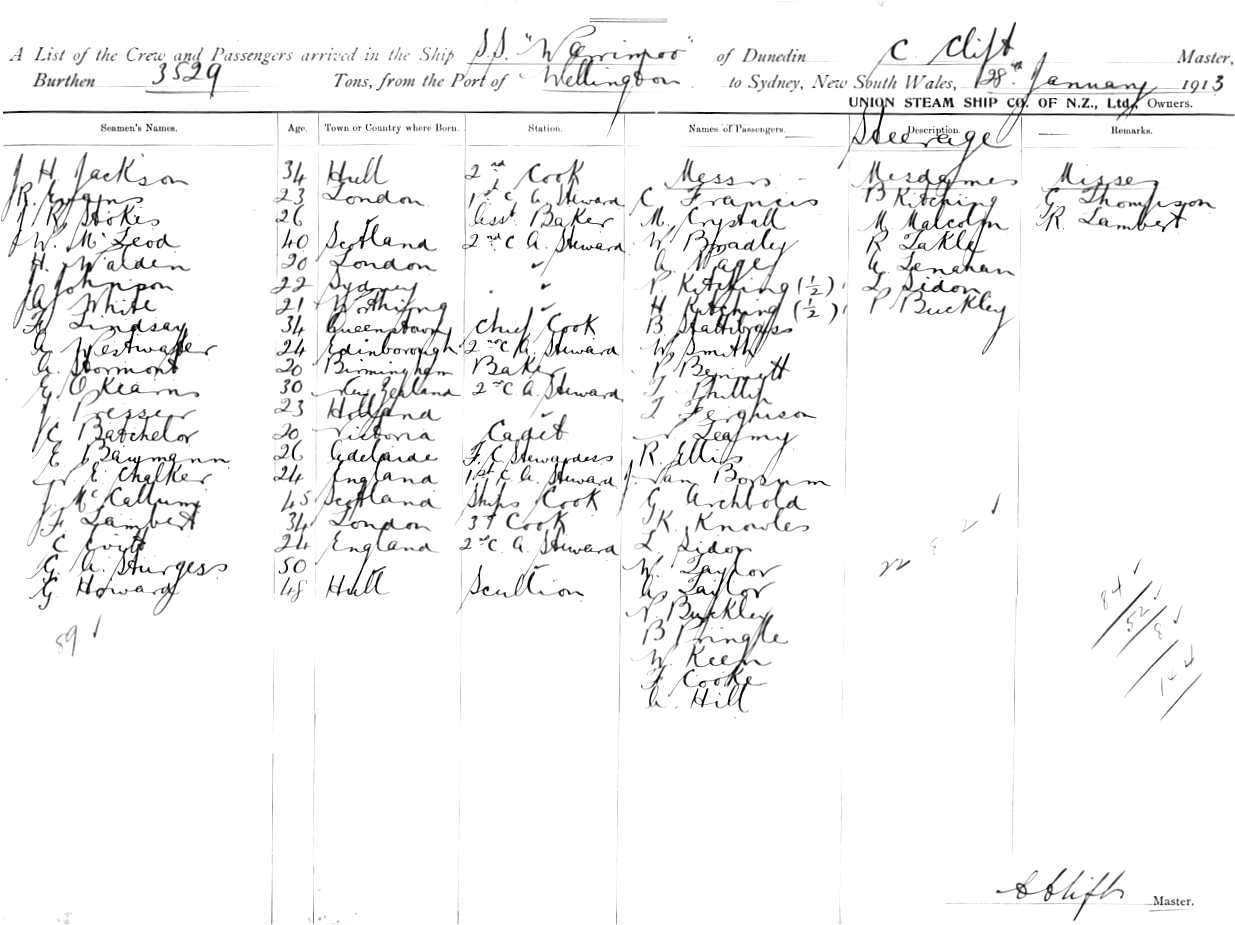 A List of the Crew and Passengers arrived in the Ship S.S. "Warrimoo" of Dunedin C. Clift Master,
Burthen 3529 Tons, from the Port of Wellington to Sydney, New South Wales, 28th January 1913
UNION STEAM SHIP CO. OF N.Z., Ltd., Owners.
Seamen's Names. Age. Town or Country where Born. Station. Names of Passengers. Description. Remarks.
Steerage
J H. Jackson 34 Hull 2nd Cook Messrs Mesdames Misses
R. Evans 23 London 1st C A. Steward C Francis B Kitching G Thompson
J R Stokes 26 " Asst Baker M. Crystall M Malcolm R. Lambert
J W. McLeod 40 Scotland 2nd C A. Steward W. Bradley R Takle
H. Walden 20 London " A Lenahan
J Johnson 22 Sydney " P. Kitching (1/2) L Sidon
A White 21 Worthing " H Kitching (1/2) P Buckley
F Lindsay 34 Queenstown Chief Cook B Stallibrass
A Westwater 24 Edinborough 2nd C A. Steward W. Smith
A. Stormont 20 Birmingham Baker P Bennett
E O'Kearns 30 New Zealand 2nd C A. Steward J. Phillip
J. Presser 23 Holland " J Ferguson
C Batchelor 20 Victoria Cadet Leamy
E Baumann 26 Adelaide F. C Stewardess R. Ellis
E. Chalker 24 England 1st C. A. Steward J Van Borsum
J McCallum 45 Scotland Ships Cook G Archbold
F Lambert 34 London 3d Cook K. Knowles
C Evitt 24 England 2nd C. A. Steward L. Sidon
G. A. Sturgess 50 " " W. Taylor
G Howard 48 Hull Scullion A. Taylor
P. Buckley
B Pringle
W. Keen
F Cooke
A. Hill
59
22 8 2
84
52
8
144
C Clift Master.